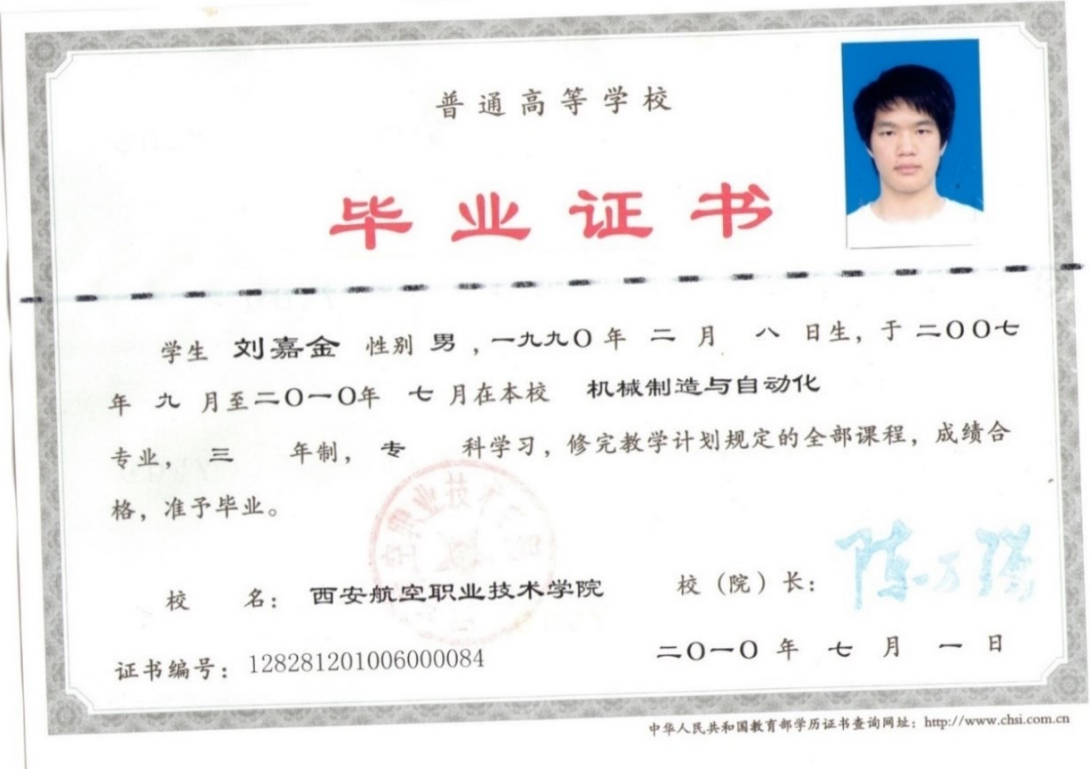 普通高等学校
毕业证书
学生 刘嘉金 性别 男 ，一九九〇年 二 月 八 日生，于 二〇〇七
年 九 月至二〇一〇年 七 月在本校 机械制造与自动化
专业， 三 年制， 专 科学习，修完教学计划规定的全部课程，成绩合
格，准予毕业。
空职业技术学院
校 名： 西安航空职业技术学院 校（院）长： 陈万强
证书编号：128281201006000084 二〇一〇 年 七 月 一 日
中华人民共和国教育部学历证书查询网址：http://www.chsi.com.cn